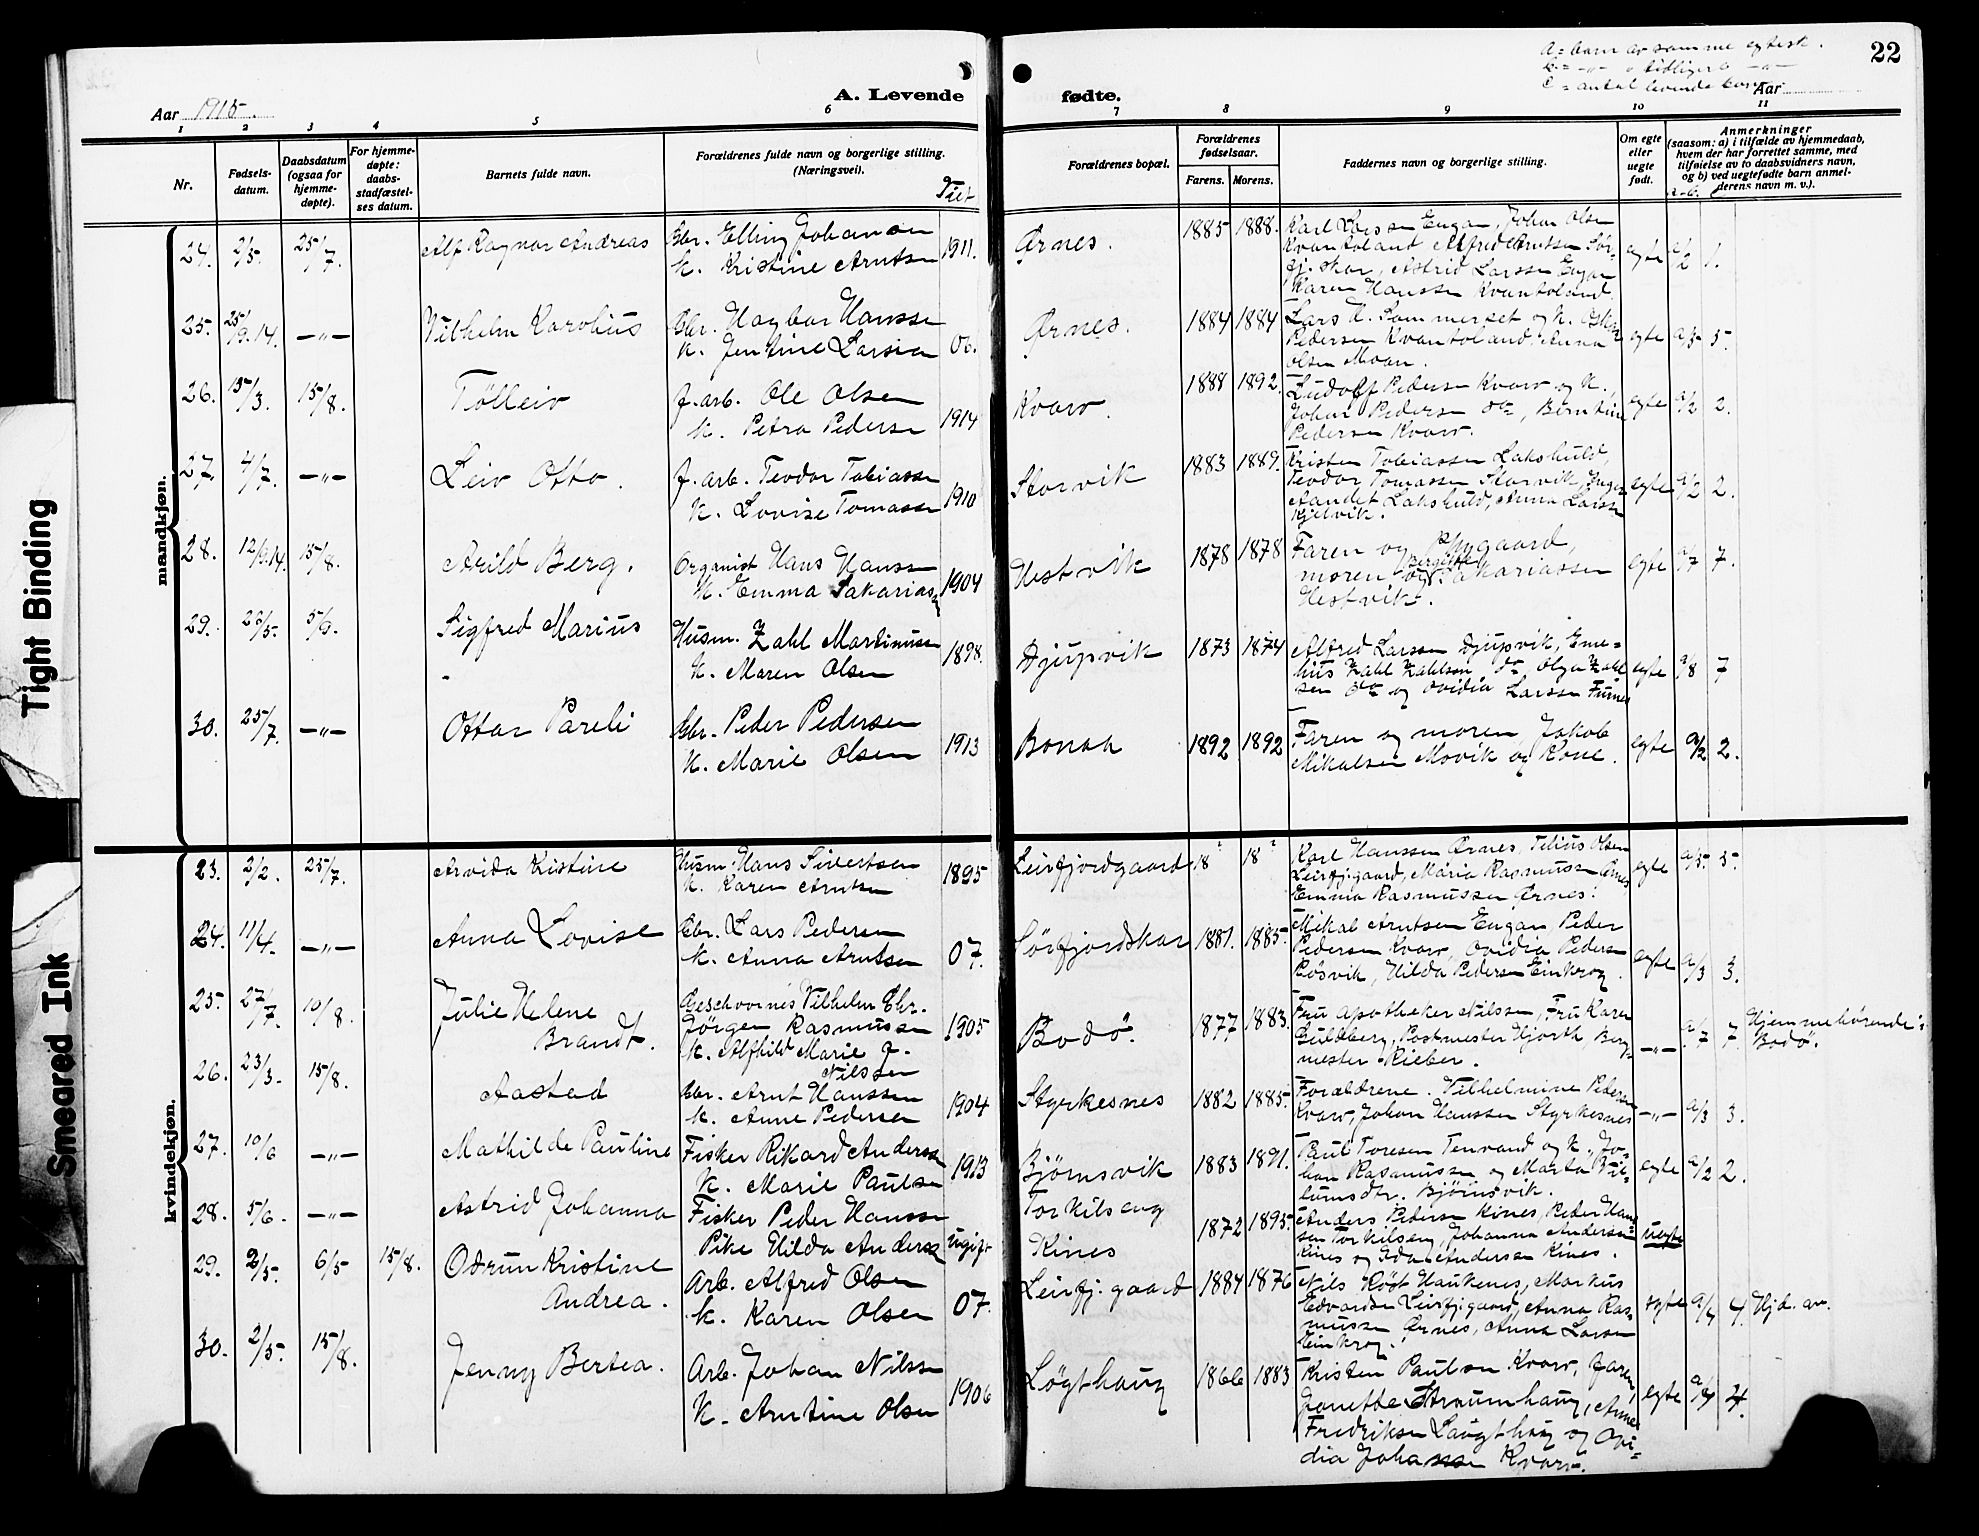 a = barn av samme egtesk.
b = -"- " tidligere -"-
c = antal levende barn
22
A. Levende fødte.
Aar 1915. Aar
1 2 3 4 5 6 7 8 9 10 11
Nr.
Fødsels-
datum.
Daabsdatum
(ogsaa for
hjemme-
døpte).
For hjemme-
døpte:
daabs-
stadfæstel-
ses datum.
Barnets fulde navn.
Forældrenes fulde navn og borgerlige stilling.
(Næringsvei).
Forældrenes bopæl.
Forældrenes
fødselsaar.
Farens. Morens.
Faddernes navn og borgerlige stilling.
Om egte
eller
uegte
født.
Anmerkninger
(saasom: a) i tilfælde av hjemmedaab,
hvem der har forrettet samme, med
tilføielse av to daabsvidners navn,
og b) ved uegtefødte barn anmel-
derens navn m. v.).
mandkjøn.
24. 2/5. 25/7. Alf Ragnar Andreas
Gbr. Elling Johansen
K. Kristine Arntsen
1911. Ørnes. 1885 1888.
Karl Larssen Engan, Johan Olsen
Kvantoland Alfred Arntsen Sør-
fj.skar, Astrid Larssen Engan
Karen Hanssen Kvantoland.
egte a/2 1.
25. 25/9.14. -"- Vilhelm Karolius
Gbr. Hagbar Hanssen
K. Jentine Larsen
06. Ørnes. 1884 1884
Lars H. Sommerset og K. Oskar
Pedersen Kvantoland. Anna
Olsen Moan.
egte a/5 5.
26. 15/3. 15/8. Tølleiv
J.arb. Ole Olsen
K. Petra Pedersen
1914 Kvarv. 1888 1892.
Ludolf Pedersen Kvarv og K.,
Johan Pedersen do, Berntine
Pedersen Kvarv.
egte a/2 2.
27. 4/7. -"- Leiv Otto.
J. arb. Teodor Tobiassen
K. Lovise Tomassen
1910 Storvik 1883 1889.
Kristen Tobiassen Lakshuld,
Teodor Tomassen Storvik, Inger
Aandet Lakshuld, Anna Larssen
Kjelvik.
egte a/2 2.
28. 12/9.14. 15/8. Arild Berg.
Organist Hans Hanssen
K. Emma Sakariassen
1904 Hestvik 1878 1878
Faren og Nygaard,
moren og Bergitte Sakariassen
Hestvik.
egte a/7 7.
29. 26/5. 5/9. Sigfred Marius
Husm. Zahl Martinussen
K. Maren Olsen
1898. Djupvik 1873 1874
Alfred Larssen Djupvik, Eme-
lius Zahl Zahlsen do Olga Zahl-
sen do og Ovidia Larssen Furnes
egte a/8 7
30. 25/7. -"- Ottar Pareli
Gbr. Peder Pedersen
K. Marie Olsen
1913 Bonaa 1892 1892
Faren og moren, Jakob
Mikalsen Movik og Kone.
egte a/2 2.
kvindekjøn.
23. 2/2. 25/7. Arvida Kristine
Husm. Hans Sivertsen
K. Karen Arntsen
1895 Leirfjordgaard 18 ? 18 ?
Karl Hanssen Ørnes, Tilius Olsen
Leirfj.gaard, Maria Rasmussen Ørnes
Emma Rasmussen Ørnes.
egte a/5. 5.
24. 11/4. -"- Anna Lovise
Gbr. Lars Pedersen
K. Anna Arntsen
07. Sørfjordskar 1881. 1885.
Mikal Arntsen Engan Peder
Pedersen Kvarv, Ovidia Pedersen
Røsvik, Hilda Pedersen Einkrog.
egte a/3 3.
25. 27/7. 10/8. Julie Helene
Brandt.
Geschvornes Vilhelm Chr.
Jörgen Rasmussen
K. Alfhild Marie J.
Nilssen
1905 Bodö. 1877 1883.
Fru Apotheker Nilssen, Fru Karen
Guldberg, Postmester Hjorth Berg-
mester Rieber.
-"- a/7 7 Hjemmehörende i
Bodö.
26. 23/3. 15/8. Aastad
Gbr. Arnt Hanssen
K. Anne Pedersen
1904 Styrkesnes 1882 1885.
Forældrene. Vilhelmine Pedersen
Kvarv, Johan Hanssen Styrkesnes
-"- a/3 3.
27. 10/6 -"- Mathilde Pauline
Fisker Rikard Anderssen
K. Marie Paulsen
1913 Bjørnsvik 1883 1891.
Paul Toresen Tenvand og K., Jo-
han Rasmussen og Marta Vil-
lumsdtr. Bjørnsvik.
egte a/2 2.
28. 5/6. -"- Astrid Johanna
Fisker Peder Hanssen
Pike Hilda Anderssen
ugift Torkilseng
Kines
1872 1895.
Anders Pedersen Kines, Peder Hans-
sen Torkilseng, Johanna Anderssen
Kines og Ida Anderssen Kines.
uegte
29. 2/5. 6/5 15/8. Odrun Kristine
Andrea.
Arb. Alfred Olsen
K. Karen Olsen
07. Leirfj.gaard 1884 1876
Nils Röst Haukenes, Markus
Edvardsen Leirfj.gaard, Anna Ras-
mussen Ørnes, Anna Larsen
Einkrog.
egte a/4 4. Hjd. av.
30. 2/5. 15/8. Jenny Bertea.
Arb. Johan Nilssen
K. Arntine Olsen
1906 Løgthaug 1866 1883
Kristen Paulsen Kvarv, faren,
Janette Straumhaug, Anne
Fredriksen Laugthaug og Ovi-
dia Johansen Kvarv.
egte a/4 4.
Tight Binding
Smeared Ink